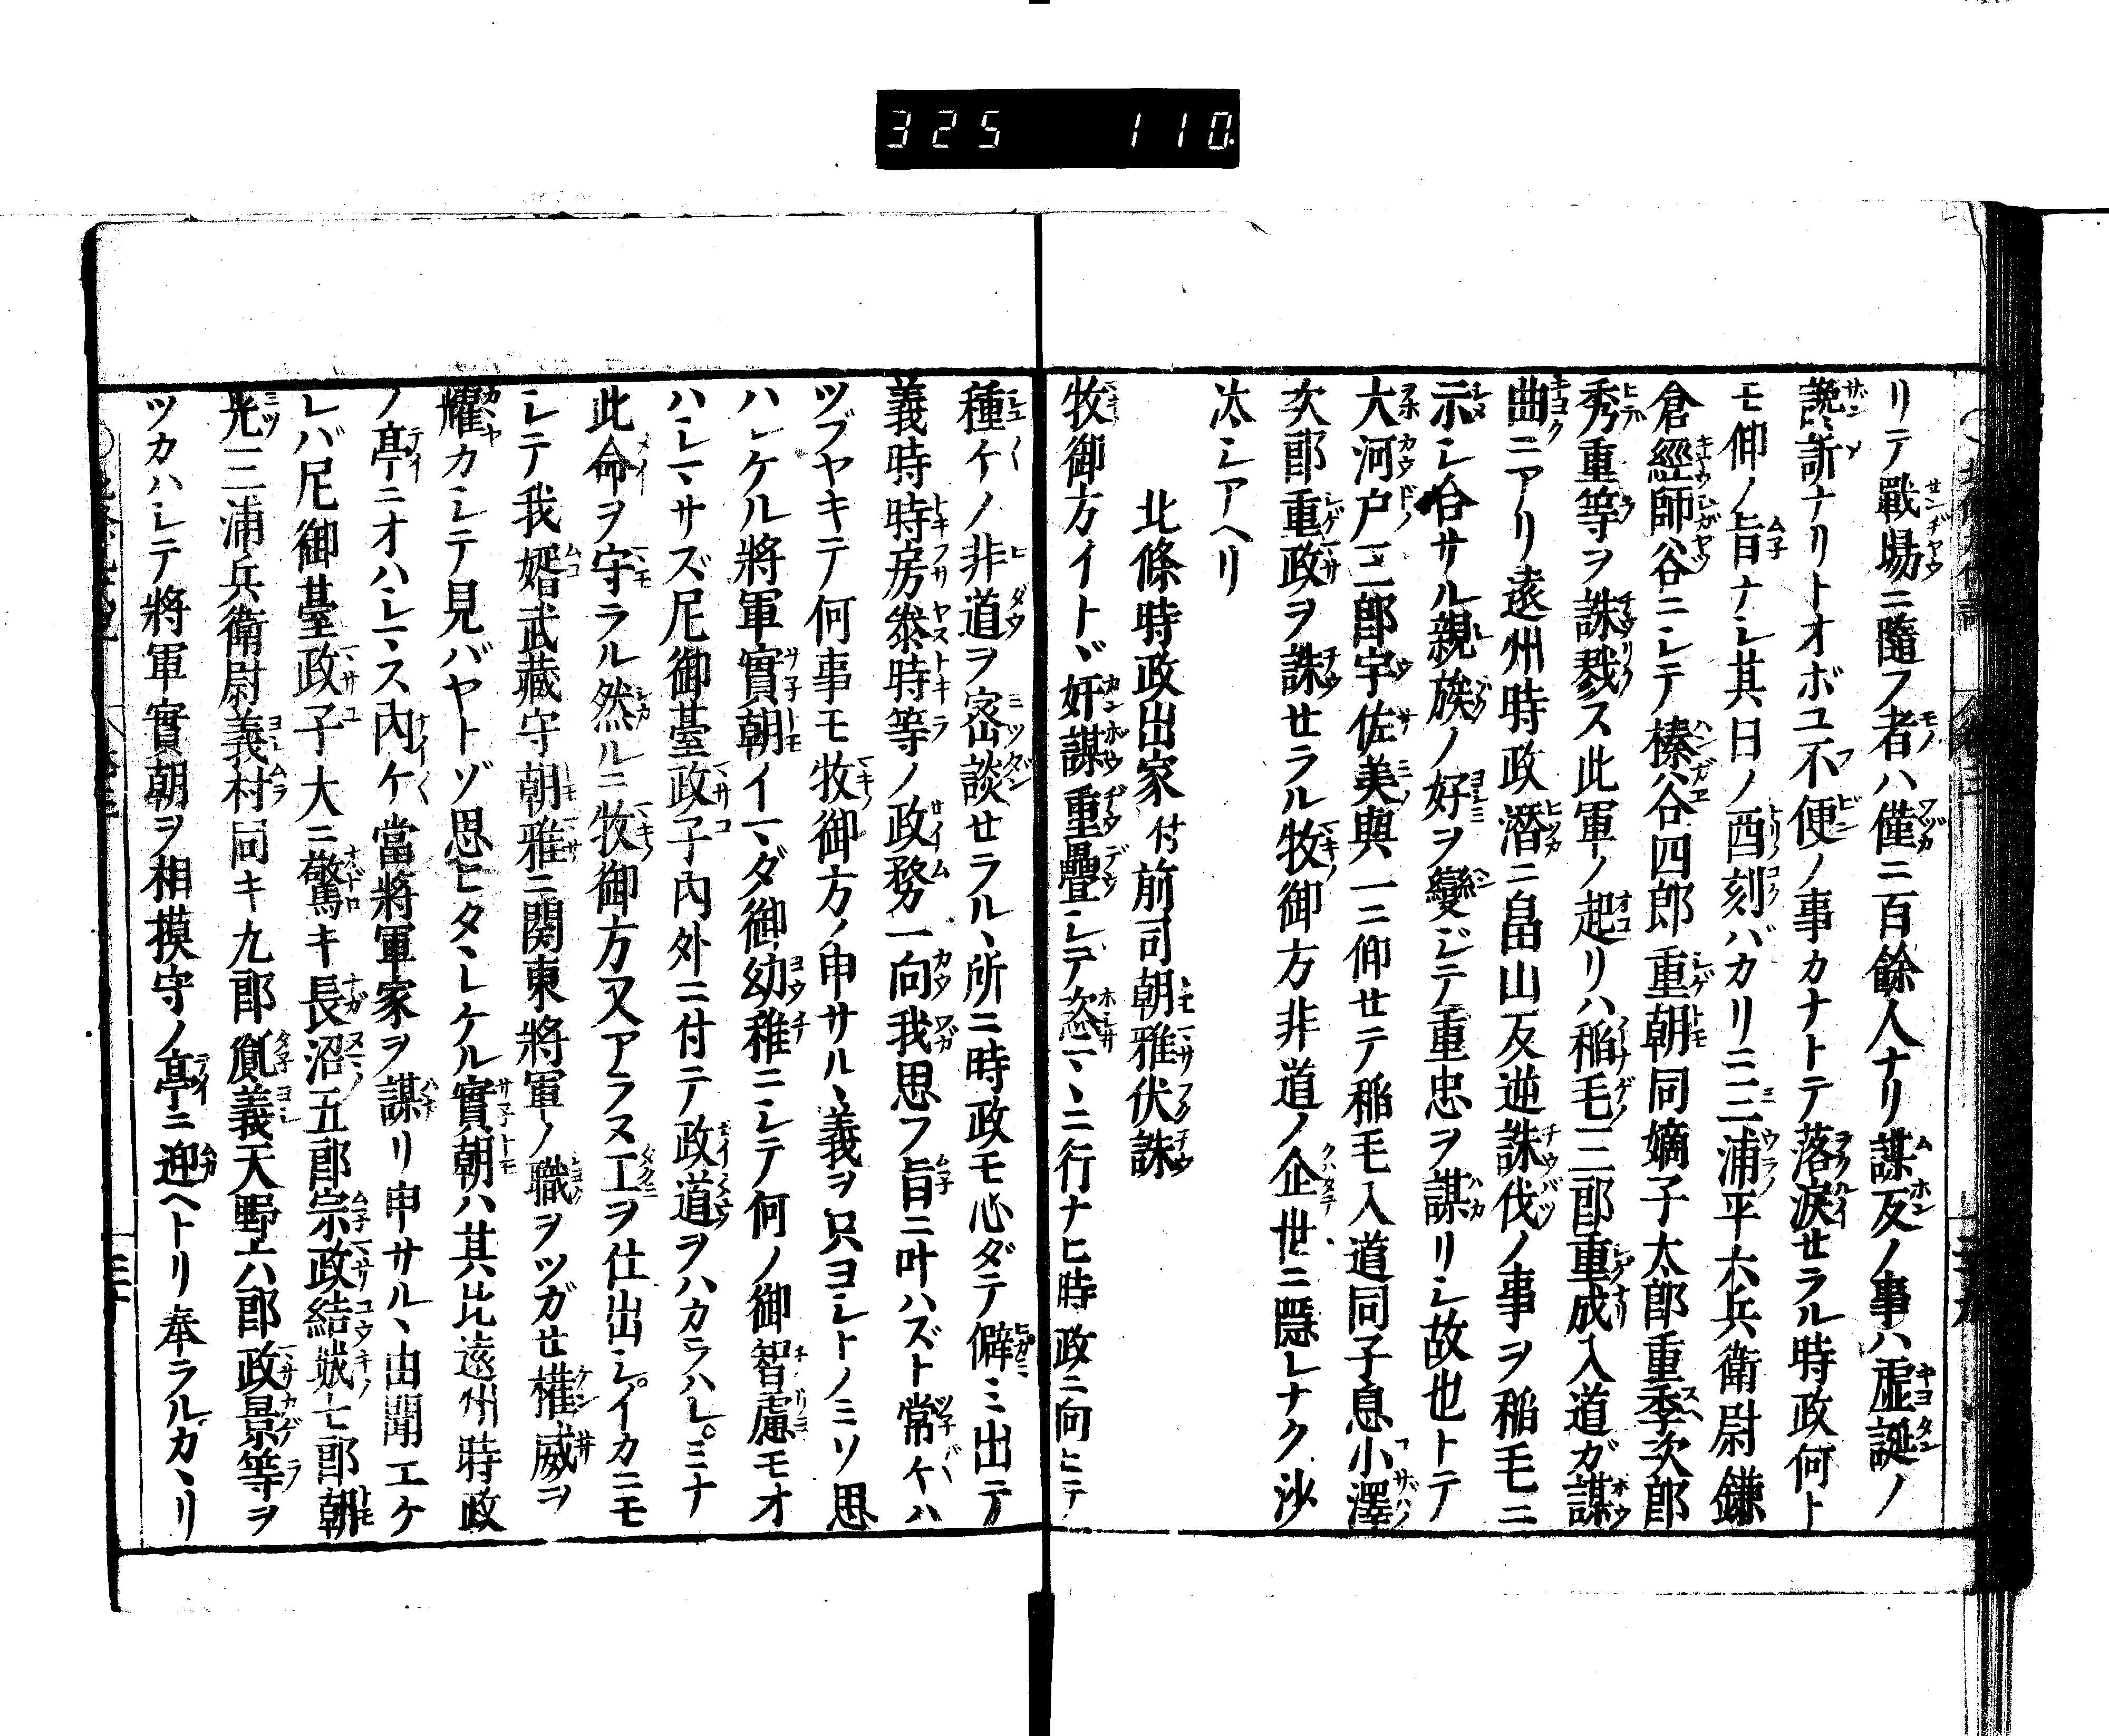 325 110
リテ戰場ニ隨フ者ハ僅ニ百餘人ナリ謀反ノ事ハ虛誕ノ
讒訴ナリトオボユ不便ノ事カナトテ落淚セラル時政何ト
モ仰ノ旨ナシ其日ノ酉刻バカリニ三浦平六兵衛尉鎌
倉經師谷ニシテ榛谷四郎重朝同嫡子太郎重季次郎
秀重等ヲ誅戮ス此軍ノ起リハ稲毛三郎重成入道ガ謀
曲ニアリ遠州時政潛ニ畠山反逆誅伐ノ事ヲ稲毛ニ
示シ合サル親族ノ好ヲ變ジテ重忠ヲ謀リシ故也トテ
大河戸三郎宇佐美與一ニ仰セテ稲毛入道同子息小澤
次郎重政ヲ誅セラル牧御方非道ノ企世ニ隱レナク沙
汰シアヘリ
北條時政出家付前司朝雅伏誅
牧御方イトヾ奸謀重疊シテ恣マヽニ行ナヒ時政ニ向ヒテ
種々ノ非道ヲ密談セラルヽ所ニ時政モ心ダテ僻ミ出テ
義時時房泰時等ノ政務一向我思フ旨ニ叶ハズト常々ハ
ツブヤキテ何事モ牧御方ノ申サルヽ義ヲ只ヨシトノミソ思
ハレケル將軍實朝イマダ御幼稚ニシテ何ノ御智慮モオ
ハシマサズ尼御臺政子內外ニ付テ政道ヲハカラハシ。ミナ
此命ヲ守ラル然ルニ牧御方又アラヌ工ヲ仕出シ。イカニモ
シテ我婿武藏守朝雅ニ関東將軍ノ職ヲツガセ權威ヲ
耀カシテ見バヤトゾ思ヒタヽレケル實朝ハ其比遠州時政
ノ亭ニオハシマス內々當將軍家ヲ謀リ申サルヽ由聞エケ
レバ尼御臺政子大ニ驚キ長沼五郎宗政結城七郎朝
光三浦兵衛尉義村同キ九郎胤義天野六郎政景等ヲ
ツカハシテ將軍實朝ヲ相摸守ノ亭ニ迎ヘトリ奉ラルカヽリ